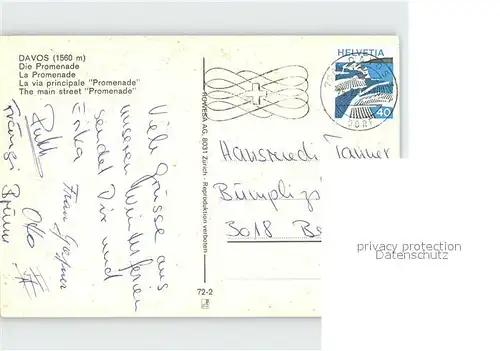 DAVOS (1560 m)
Die Promenade
La Promenade
La via principale "Promenade"
The main street "Promenade"
Viele Grüsse aus
unseren Winterferien
sendet Dir und
Erika Fran
Ruth Otto
Brüni
ROWESA AG, 8031 Zürich - Reproduktion verboten
72-2
HELVETIA
40
Hansruedi Tanner
Bümpliz
3018 Be
privacy protection
Datenschutz